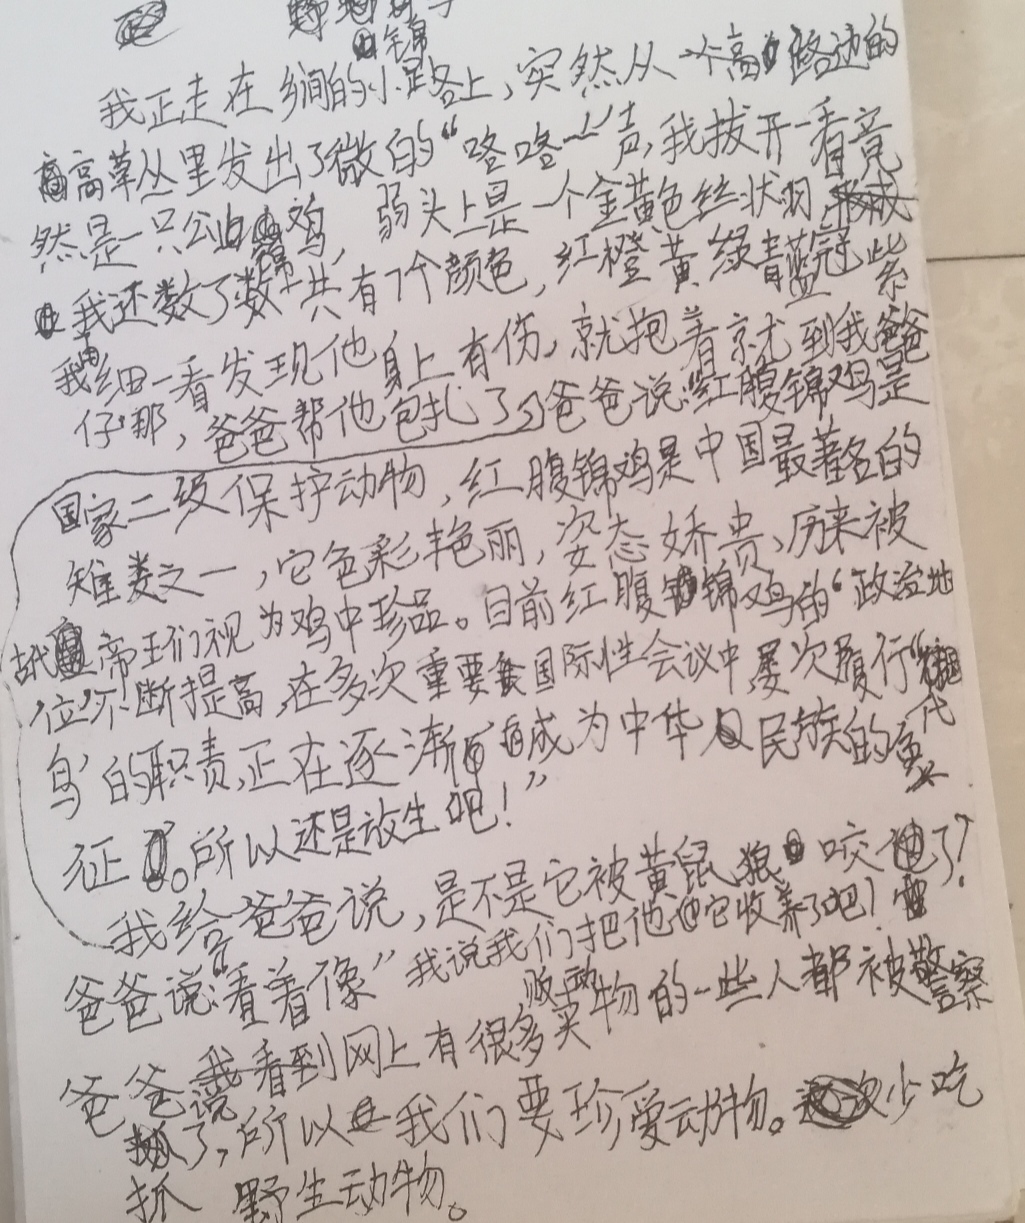 锦
我正走在乡间的小路上，突然从一个高路边的
高草丛里发出了微的“咯咯”声，我拔开一看竟
然是一只公锦鸡，头上是一个金黄色丝状羽冠
我还数了数一共有7个颜色，红橙黄绿青蓝紫
我仔细一看发现他身上有伤，就抱着就到我爸爸
那，爸爸帮他包扎了，爸爸说：“红腹锦鸡是
国家二级保护动物，红腹锦鸡是中国最著名的
雉类之一，它色彩艳丽，姿态娇贵，历来被
帝王们视为鸡中珍品。目前红腹锦鸡的“政治地
位”不断提高，在多次重要国际性会议中，屡次履行“
鸟”的职责，正在逐渐成为中华民族的代
征。所以还是放生吧！”
我给爸爸说，是不是它被黄鼠狼咬了？
爸爸说：“看着像”我说我们把他它收养了吧！
爸爸说看到网上有很多买贩动物的一些人都被警察
抓了，所以我们要珍爱动物。少吃
抓 野生动物。